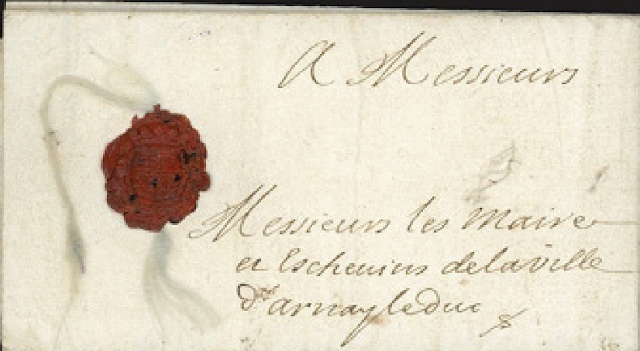 A Messieurs
Messieurs les maire
et Eschevins delaville
d'arnayleduc